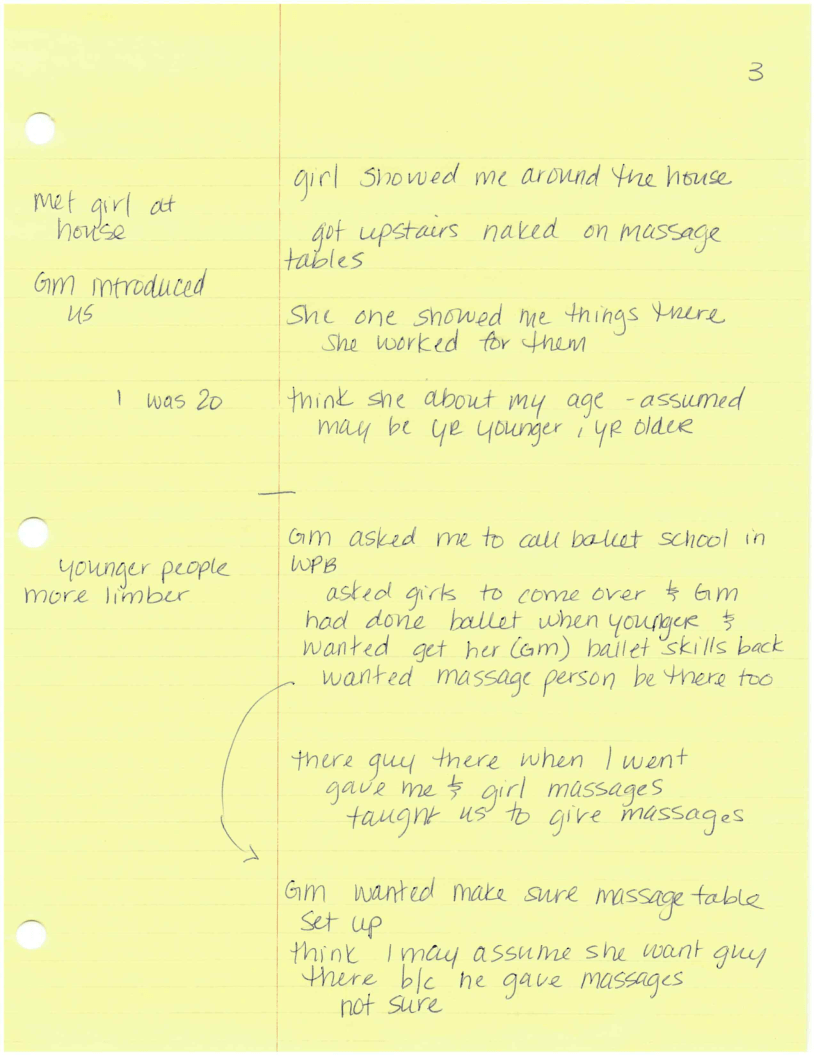 3
girl showed me around the house
met girl at
house
got upstairs naked on massage
tables
GM introduced
us
She one showed me things there
she worked for them
I was 20
think she about my age - assumed
may be yr younger, yr older
GM asked me to call ballet school in
WPB
younger people
more limber
asked girls to come over & GM
had done ballet when younger &
wanted get her (GM) ballet skills back
wanted massage person be there too
there guy there when I went
gave me & girl massages
taught us to give massages
GM wanted make sure massage table
set up
think I may assume she want guy
there b/c he gave massages
not sure